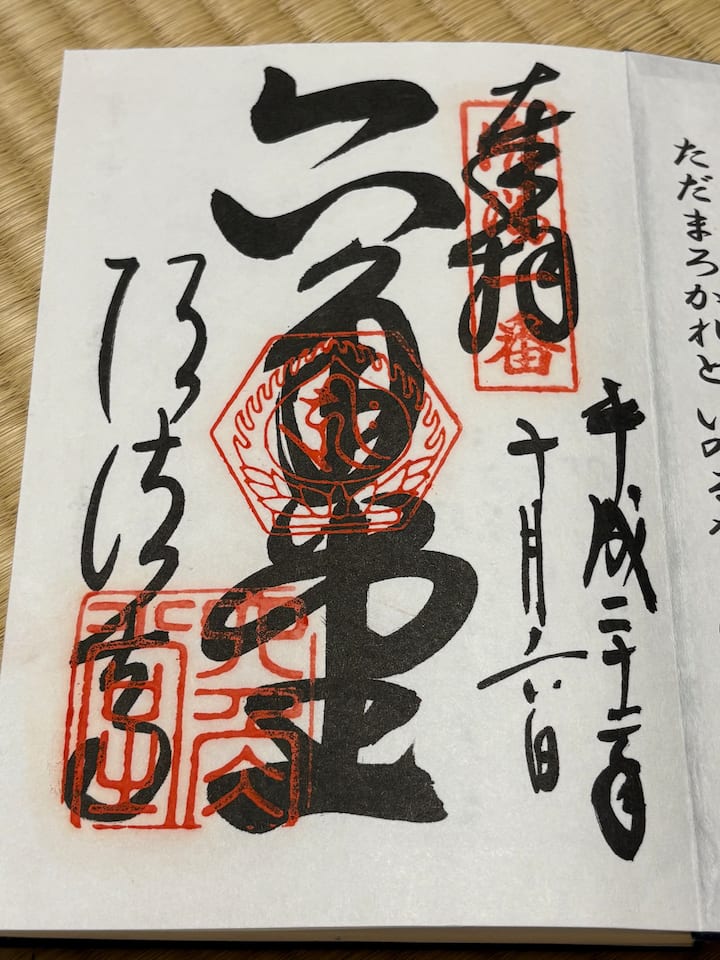 ただまろかれと いのる
奉拝
洛陽一番
平成二十二年
十月六日
六角堂
頂法寺